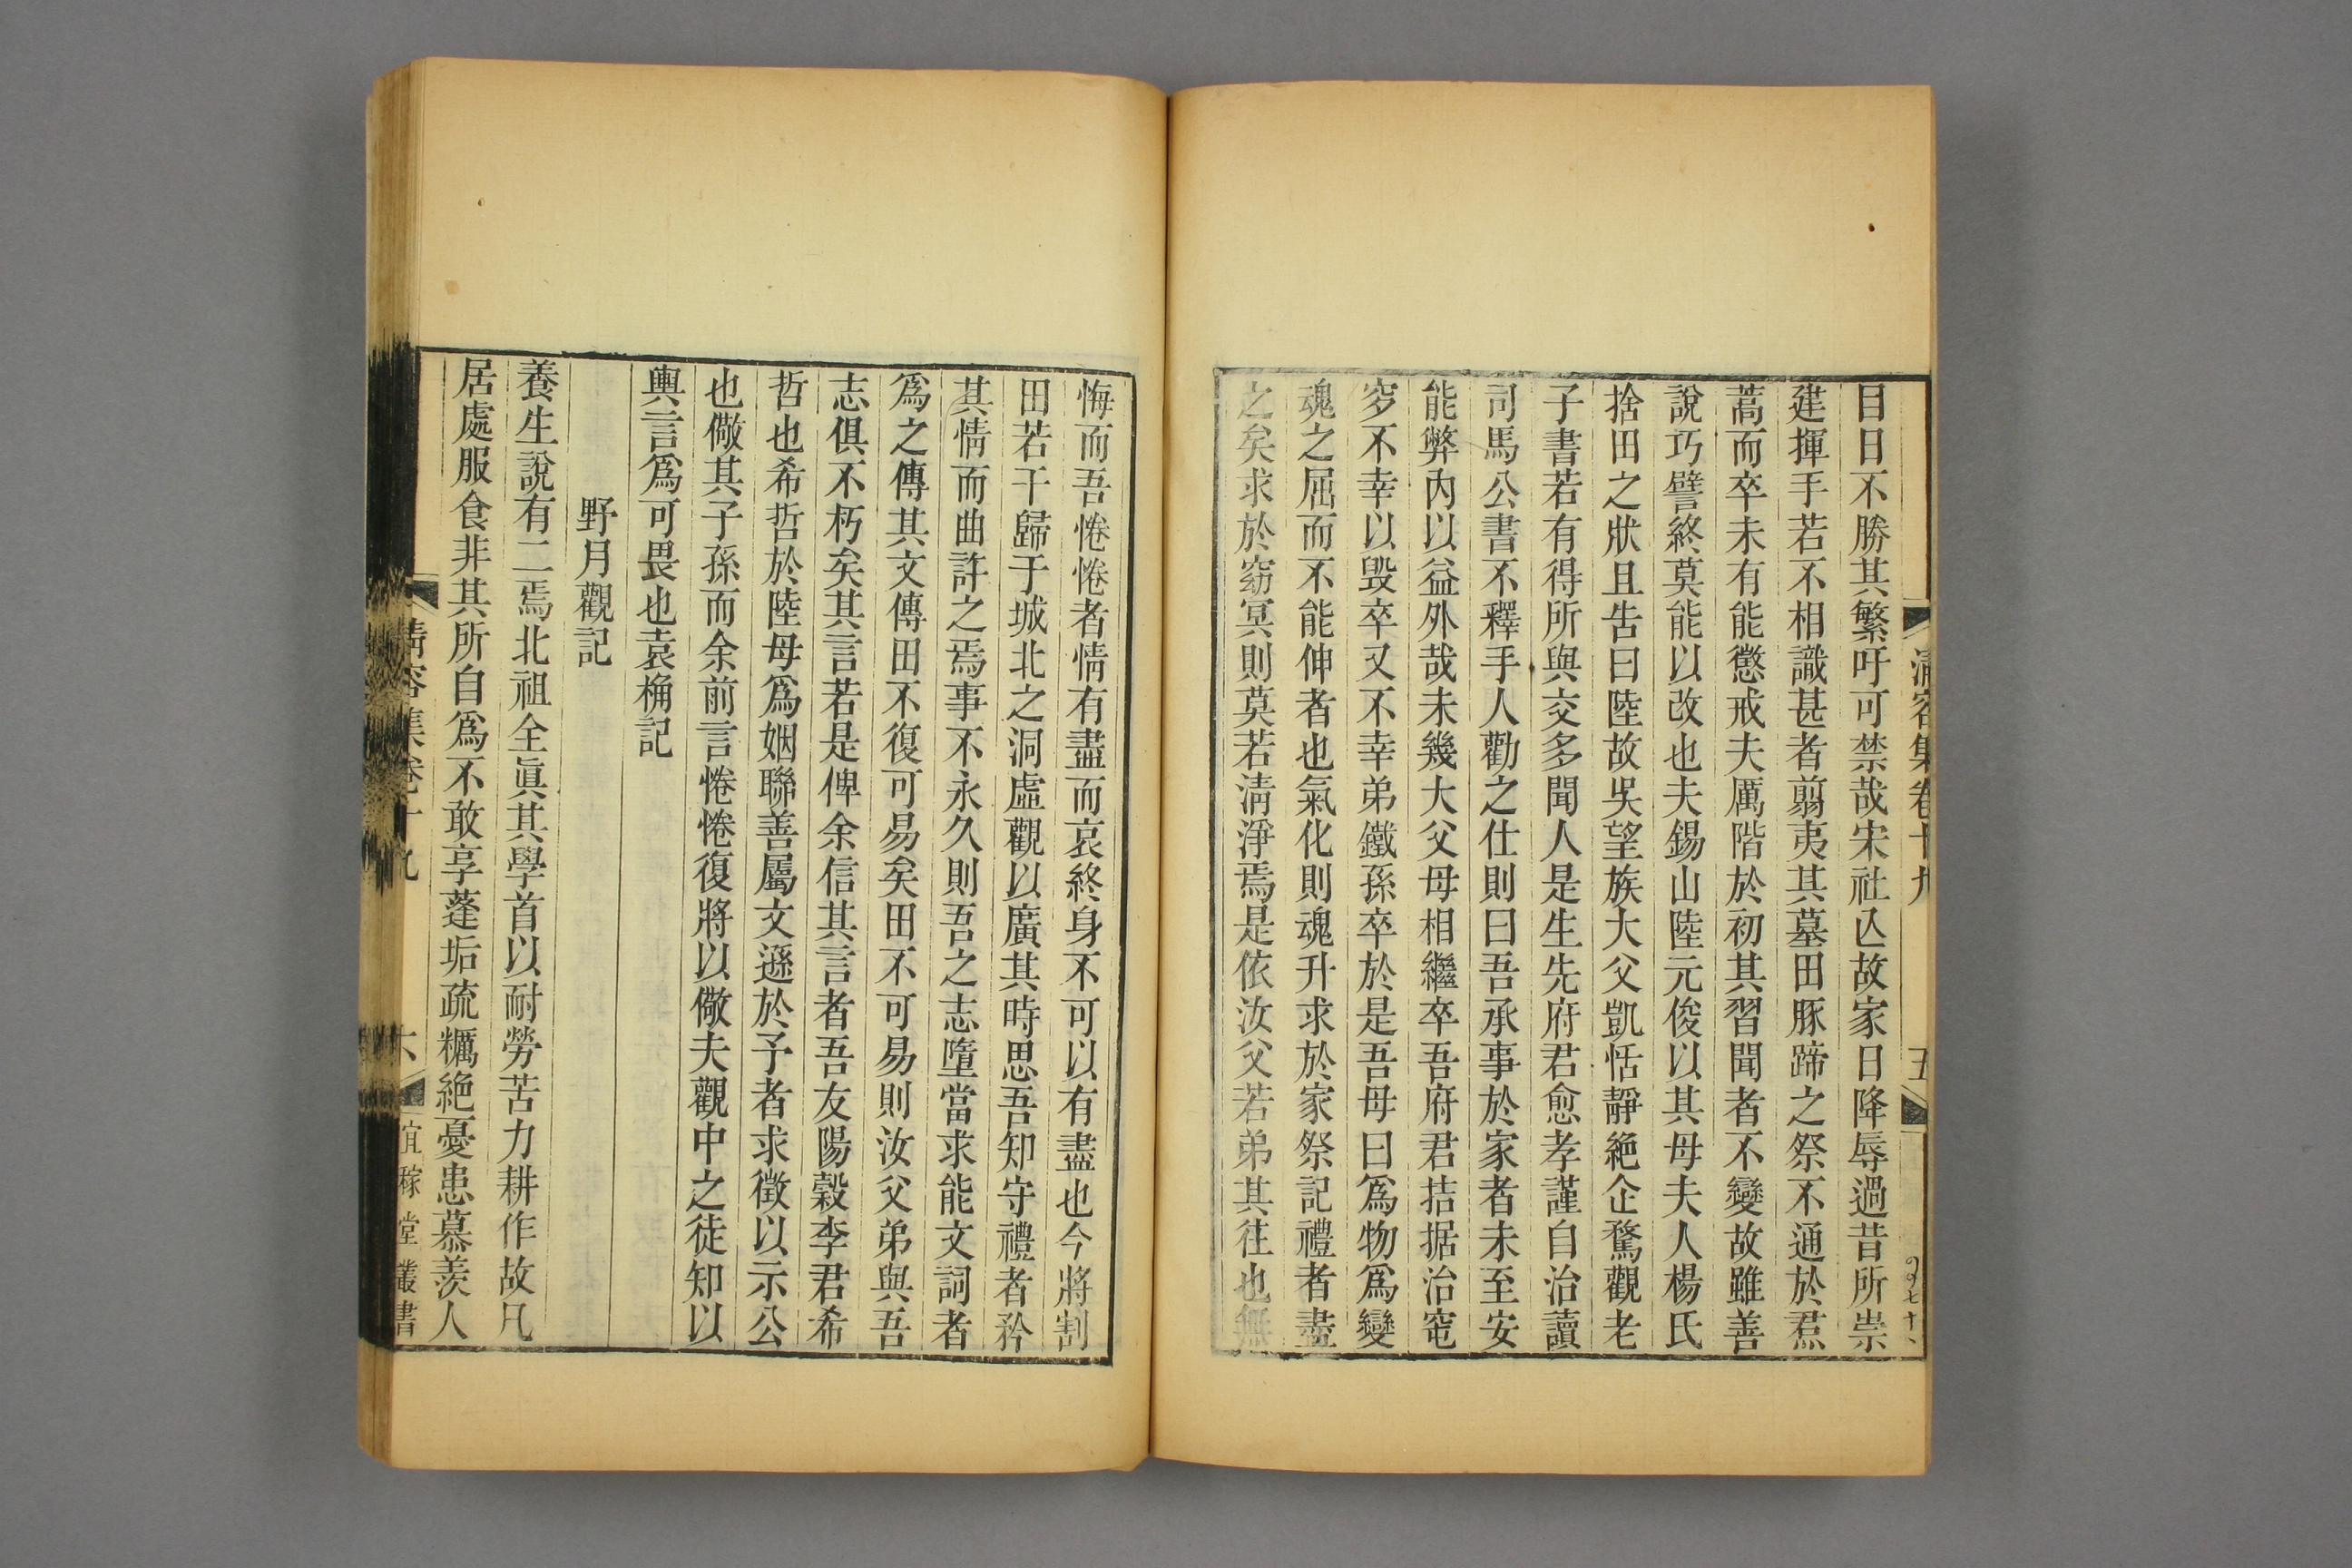 目日不勝其繁吁可禁哉宋社亾故家日降辱過昔所祟
建揮手若不相識甚者翦夷其墓田豚蹄之祭不通於焄
蒿而卒未有能懲戒夫厲階於初其習聞者不變故雖善
說巧譬終莫能以改也夫錫山陸元俊以其母夫人楊氏
捨田之狀且告曰陸故吳望族大父凱恬靜絶企騖觀老
子書若有得所與交多聞人是生先府君愈孝謹自治讀
司馬公書不釋手人勸之仕則曰吾承事於家者未至安
能弊內以益外哉未幾大父母相繼卒吾府君拮据治窀
穸不幸以毁卒又不幸弟鐵孫卒於是吾母曰爲物爲變
魂之屈而不能伸者也氣化則魂升求於家祭記禮者盡
之矣求於窈冥則莫若淸淨焉是依汝父若弟其往也無
清容集卷十九
五
悔而吾惓惓者情有盡而哀終身不可以有盡也今將割
田若干歸于城北之洞虛觀以廣其時思吾知守禮者矜
其情而曲許之焉事不永久則吾之志墮當求能文詞者
爲之傳其文傳田不復可易矣田不可易則汝父弟與吾
志俱不朽矣其言若是俾余信其言者吾友陽穀李君希
哲也希哲於陸母爲姻聯善屬文遜於予者求徵以示公
也儆其子孫而余前言惓惓復將以儆夫觀中之徒知以
輿言爲可畏也袁桷記
野月觀記
養生說有二焉北祖全眞其學首以耐勞苦力耕作故凡
居處服食非其所自爲不敢享蓬垢疏糲絶憂患慕羨人
清容集卷十九
六
宜稼堂叢書